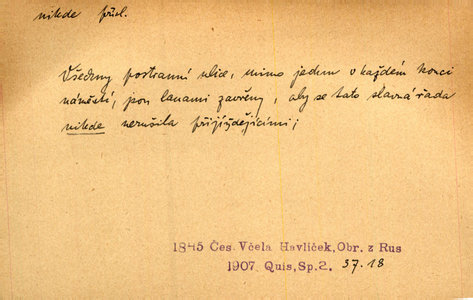 nikde přísl.
Všechny postranní ulice, mimo jednu v každém konci
náměstí, jsou lanami zavřeny, aby se tato slavná řada
nikde nerušila přijíždějícími;
1845 Čes. Včela Havlíček, Obr. z Rus
1907 Quis, Sp. 2. 37.18